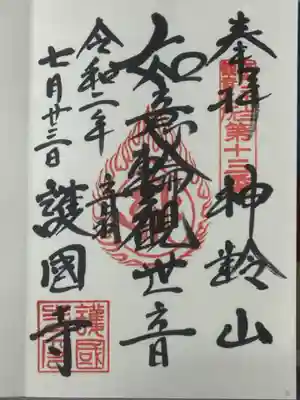 奉拝 神齢山
第十三番
如意輪觀世音
令和二年 音羽
七月廿三日 護國寺